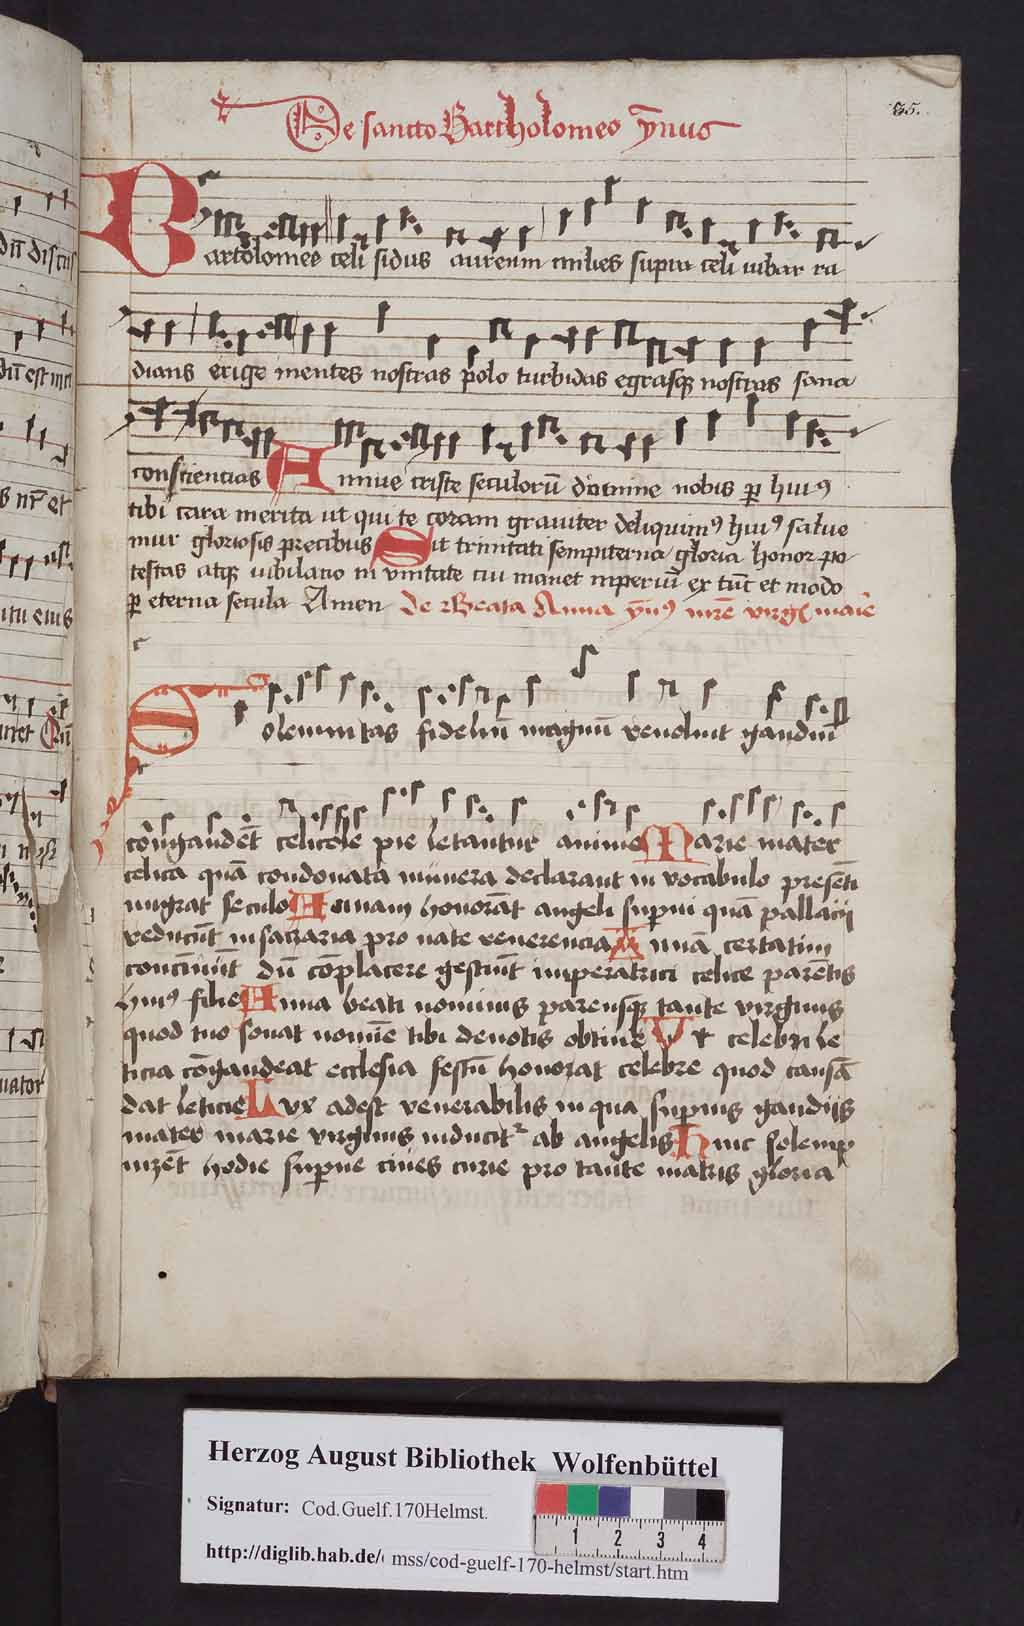 85.
De sancto Bartholomeo ỹnus
Bartolomee celi sidus aureum milies supra celi iubar ra
dians erige mentes nostras polo turbidas egrasqꝫ nostras sana
consciencias Annue criste seculorū domine nobis ꝑ huiꝰ
tibi cara merita ut qui te coram grauiter deliquimꝰ huiꝰ salue
mur gloriosis precibus Sit trinitati sempiterna gloria honor po
testas atqꝫ iubilacio in vnitate cui manet inperiū ex tūc et modo
ꝑ eterna secula Amen de Beata Anna ỹnꝰ mr̄e virgīs marie
Solemnitas fidelium magnū reuoluit gaudiū
cōngaudēt celicole pie letantur anime Marie mater
celica quā condonata munera declarant in vocabulo presēti
migrat seculo Annam honorāt angeli suꝑni quā pallacij
reducūt in sacraria pro nate reuerencia Annā certatim
concīnūt dū cōplacere gestiūt imperatrici celice parētis
huiꝰ filie Anna beati nominis parensqꝫ tante virginis
quod tuo sonat nomīe tibi deuotis obtine Vt celebri le
ticia cōgaudeat ecclesia festū honorat celebre quod causā
dat leticie Lux adest venerabilis in qua suꝑnis gaudijs
mater marie virginis inducit᷑ ab angelis Hinc solemp
nizēt hodie suꝑne ciues curie pro tante matris gloria
Herzog August Bibliothek Wolfenbüttel
Signatur: Cod.Guelf.170Helmst.
http://diglib.hab.de/ mss/cod-guelf-170-helmst/start.htm
1 2 3 4